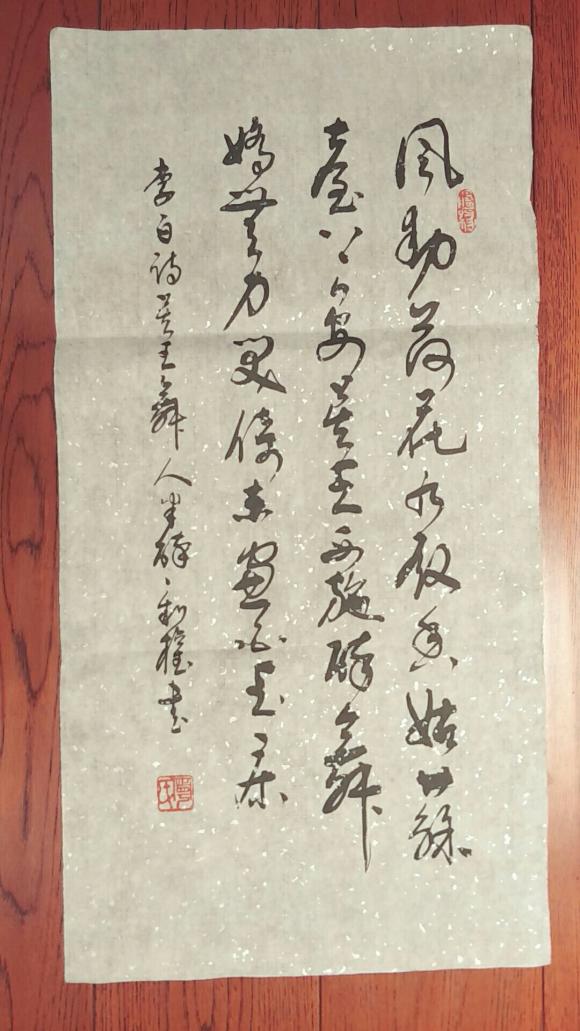 風動荷花水殿香姑蘇
臺上宴吳王西施醉舞
嬌無力笑倚東窗白玉床
李白詩吳王舞人半醉利權书